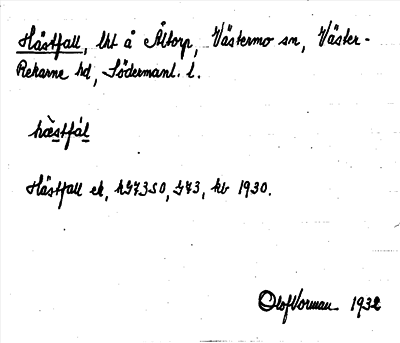 Hästfall, lht å Åltorp, Västermo sn, Väster-
Rekarne hd, Södermanl. l.
hæ̀stfál
Hästfall ek, 
kb 1930.
Olof Vorman 1932